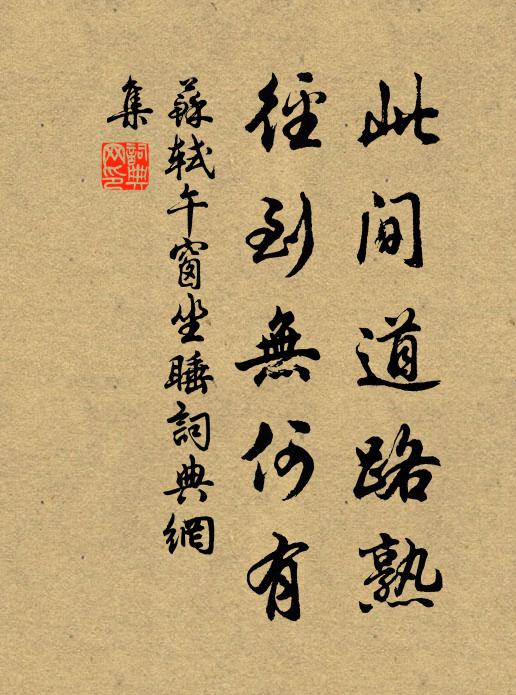 此間道路熟
徑到無何有
蘇軾午窗坐睡詞典網
集
詞典
网印